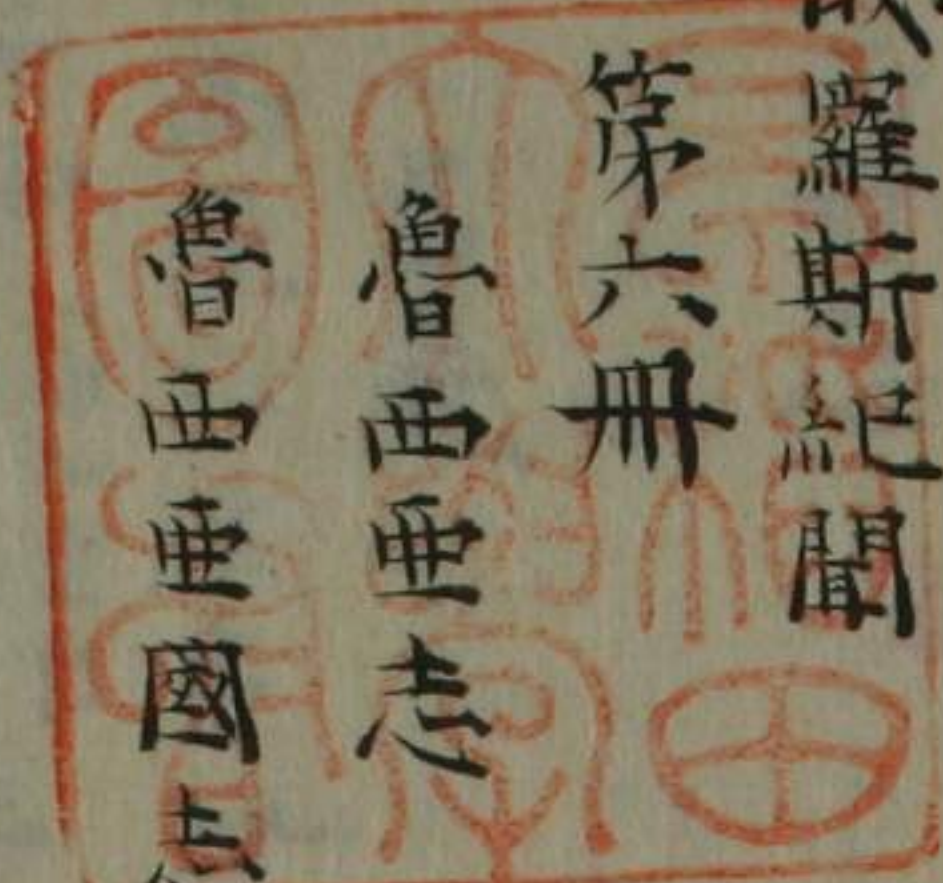 羅斯紀聞
第六冊
魯西亜志
魯西亜國志